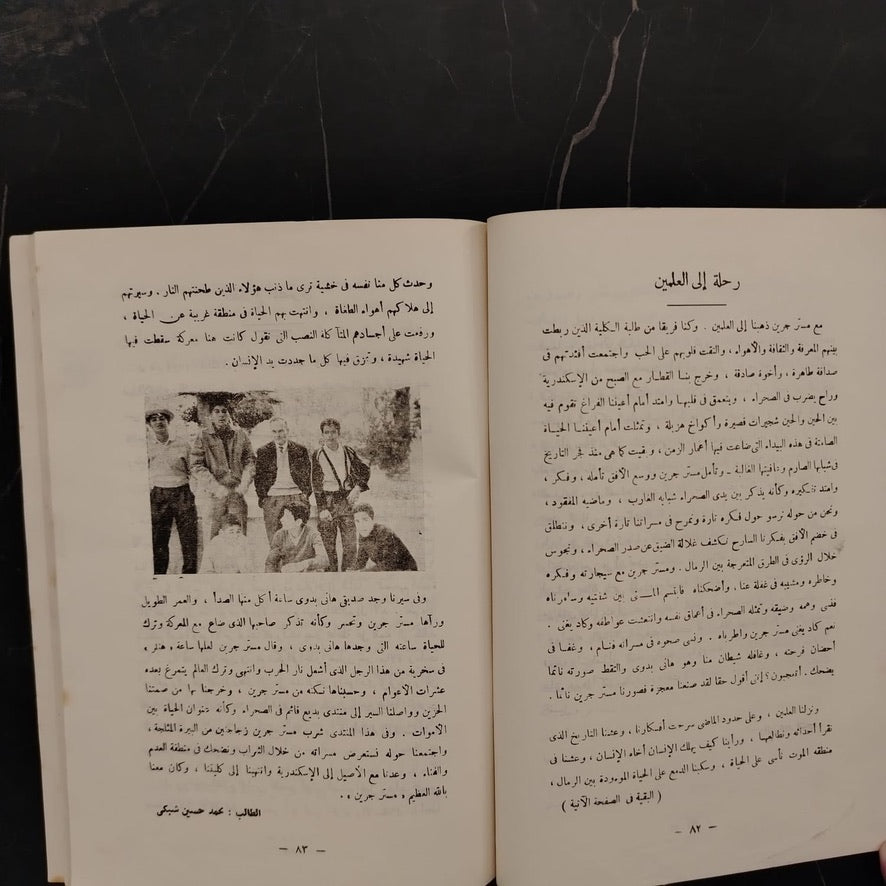 رحلة إلى العلمين
مع مستر جرين ذهبنا إلى العلمين . وكنا فريقا من طلبة الكلية الذين ربطت
بينهم المعرفة والثقافة والأهواء ، والتقت قلوبهم على الحب واجتمعت أفئدتهم فى
صداقة طاهرة ، وأخوة صادقة ، وخرج بنا القطار مع الصبح من الإسكندرية
وراح يضرب فى الصحراء ، ويتعمق فى قلبها وامتد أمام أعيننا الفراغ تقوم فيه
بين الحين والحين شجيرات قصيرة وأكواخ هزيلة ، وتمثلت أمام أعيننا الحياة
الصامتة فى هذه البيداء التى ضاعت فيها أعمار الزمن ، وبقيت كما هى منذ فجر التاريخ
فى شبابها الصارم و الغالبة ـ وتأمل مستر جرين ووسع الأفق تأمله ، وفكر ،
وامتد تفكيره وكأنه يذكر بين يدى الصحراء شبابه الغارب ، وماضيه المفقود ،
ونحن من حوله نرسو حول فكره تارة ونمرح فى مسراتنا تارة أخرى ، وننطلق
فى خضم الأفق بفكرنا السارح لنكشف غلالة الضيق عن صدر الصحراء ، ونجوس
خلال الرؤى فى الطرق المتعرجة بين الرمال . ومستر جرين مع سيجارته وفكره
وخاطره ومشيبه فى غفلة عنا . وأضحكناه فابتسم المسن بين شفتيه وسامرناه
فنسى وهمه وضيقه وتمثله الصحراء فى أعماق نفسه وانتعشت عواطفه وكاد يغنى .
نعم كاد يغنى مستر جرين واطرباه . ونسى صحوه فى مسراته فنام ، وغفا فى
أحضان فرحته ، وغافله شيطان منا وهو هانى بدوى والتقط صورته نائما
يضحك . أتعجبون ؟ إننى أقول حقا لقد صنعنا معجزة فصورنا مستر جرين نائما .
ونزلنا العلمين ، وعلى حدود الماضى سرحت أفكارنا ، وعشنا التاريخ الذى
نقرأ أحداثه ونطالعها ، ورأينا كيف يهلك الإنسان أخاه الإنسان ، وعشنا فى
منطقه الموت نأسى على الحياة ، وسكبنا الدمع على الحياة الموءودة بين الرمال ،
( البقية فى الصفحة الآتية )
— ٨٢ —
وحدث كل منا نفسه فى خشية ترى ما ذنب هؤلاء الذين طحنتهم النار . وسيرتهم
إلى هلاكهم أهواء الطغاة ، وانتهت بهم الحياة فى منطقة غريبة عن الحياة ،
ورفعت على أجسادهم المتآكلة النصب التى تقول كانت هنا معركة سقطت فيها
الحياة شهيدة ، وتمزق فيها كل ما جددت يد الإنسان .
وفى سيرنا وجد صديقى هانى بدوى ساعة أكل منها الصدأ ، والعمر الطويل
ورآها مستر جرين وتحسر وكأنه تذكر صاحبها الذى ضاع مع المعركة وترك
للحياة ساعته التى وجدها هانى بدوى ، وقال مستر جرين لعلها ساعة « هتلر »
فى سخرية من هذا الرجل الذى أشعل نار الحرب وانتهى وترك العالم يتمرغ بعده
عشرات الأعوام ، وحسبناها نكته من مستر جرين ، وخرجنا بها من صمتنا
الحزين وواصلنا السير إلى منتدى بديع قائم فى الصحراء وكأنه عنوان الحياة بين
الأموات . وفى هذا المنتدى شرب مستر جرين زجاجتين من البيرة المثلجة ،
واجتمعنا حوله نستعرض مسراته من خلال الشراب ونضحك فى منطقة العدم
والفناء ، وعدنا مع الأصيل إلى الإسكندرية وانتهينا إلى كليتنا ، وكان معنا
بالله العظيم « مستر جرين » .
الطالب : محمد حسين شبكى
— ٨٣ —